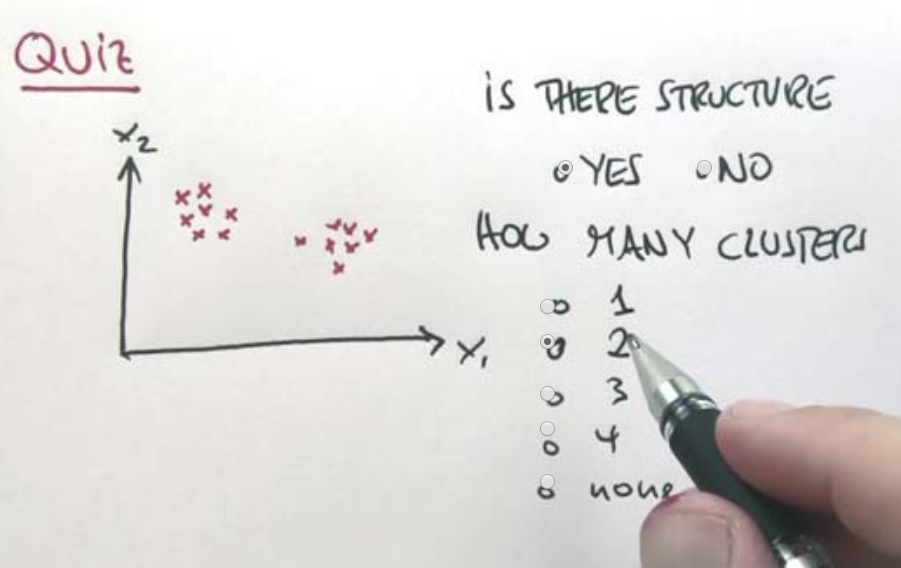 QUIZ
X2
X1
IS THERE STRUCTURE
YES NO
HOW MANY CLUSTERS
1
2
3
4
none